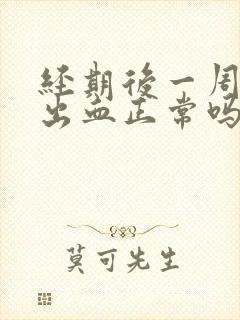 经期後一周
出血正常吗
莫可先生